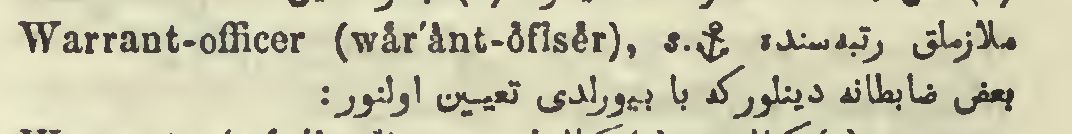 Warrant-officer (wår′ånt-ŏfĭsẻr), s.⚓ ملازملق رتبه‌سنده
بعض ضابطانه دینلور که با بیورلدی تعیین اولنور :